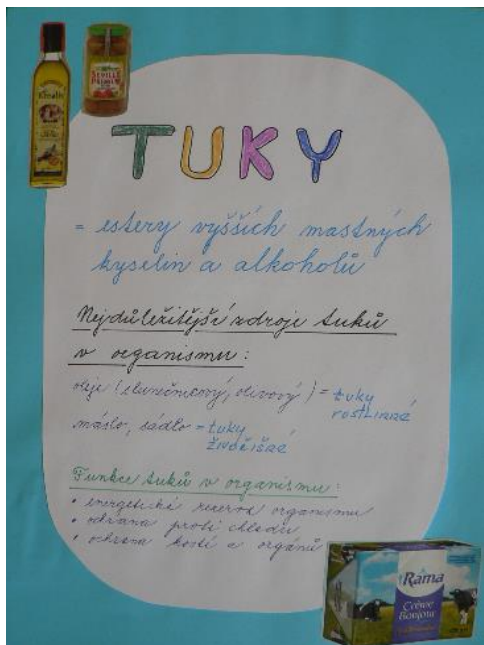 SEVILLE
PREMIUM
TUKY
= estery vyšších mastných
kyselin a alkoholů
Nejdůležitější zdroje tuků
v organismu:
oleje (slunečnicový, olivový) = tuky
rostlinné
máslo, sádlo = tuky
živočišné
Funkce tuků v organismu:
• energetická rezerva organismu
• ochrana proti chladu
• ochrana kostí a orgánů
Rama
Crème
Bonjour